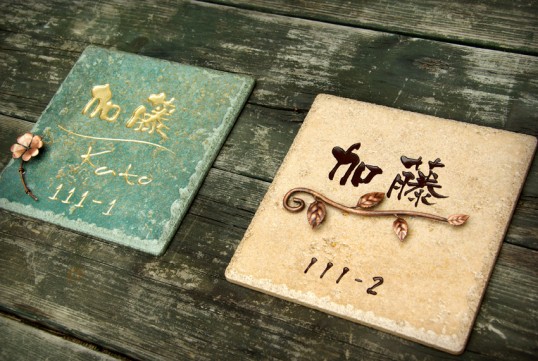 加藤
Kato
111-1
加藤
111-2